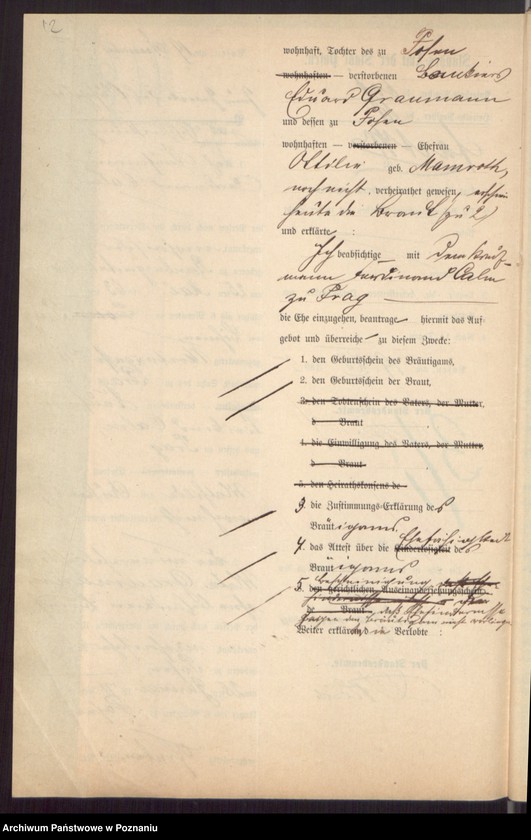 12
wohnhaft, Tochter des zu Posen
wohnhaften — verstorbenen Bankiers
Eduard Graumann
und dessen zu Posen
wohnhaften — verstorbenen — Ehefrau
Ottilie geb. Mamroth,
noch nicht verheirathet gewesen, erschien
heute die Braut (zu 2)
und erklärte :
Ich beabsichtige mit dem Kauf-
mann Ferdinand Calm
zu Prag
die Ehe einzugehen, beantrage hiermit das Auf-
gebot und überreiche zu diesem Zwecke:
1. den Geburtschein des Bräutigams,
2. den Geburtschein der Braut,
3. den Todtenschein des Vaters, der Mutter,
d Braut
4. die Einwilligung des Vaters, der Mutter,
d Braut
5. den Heirathskonsens de
3. die Zustimmungs-Erklärung des
Bräutigams,
4. das Attest über die Ehefähigkeit des
Bräutigams
5. Bescheinigung
8. den gerichtlichen Auseinandersetzungsschein
de Braut daß Ehehindernisse
nicht
Weiter erklären die Verlobte :
Archiwum Państwowe w Poznaniu